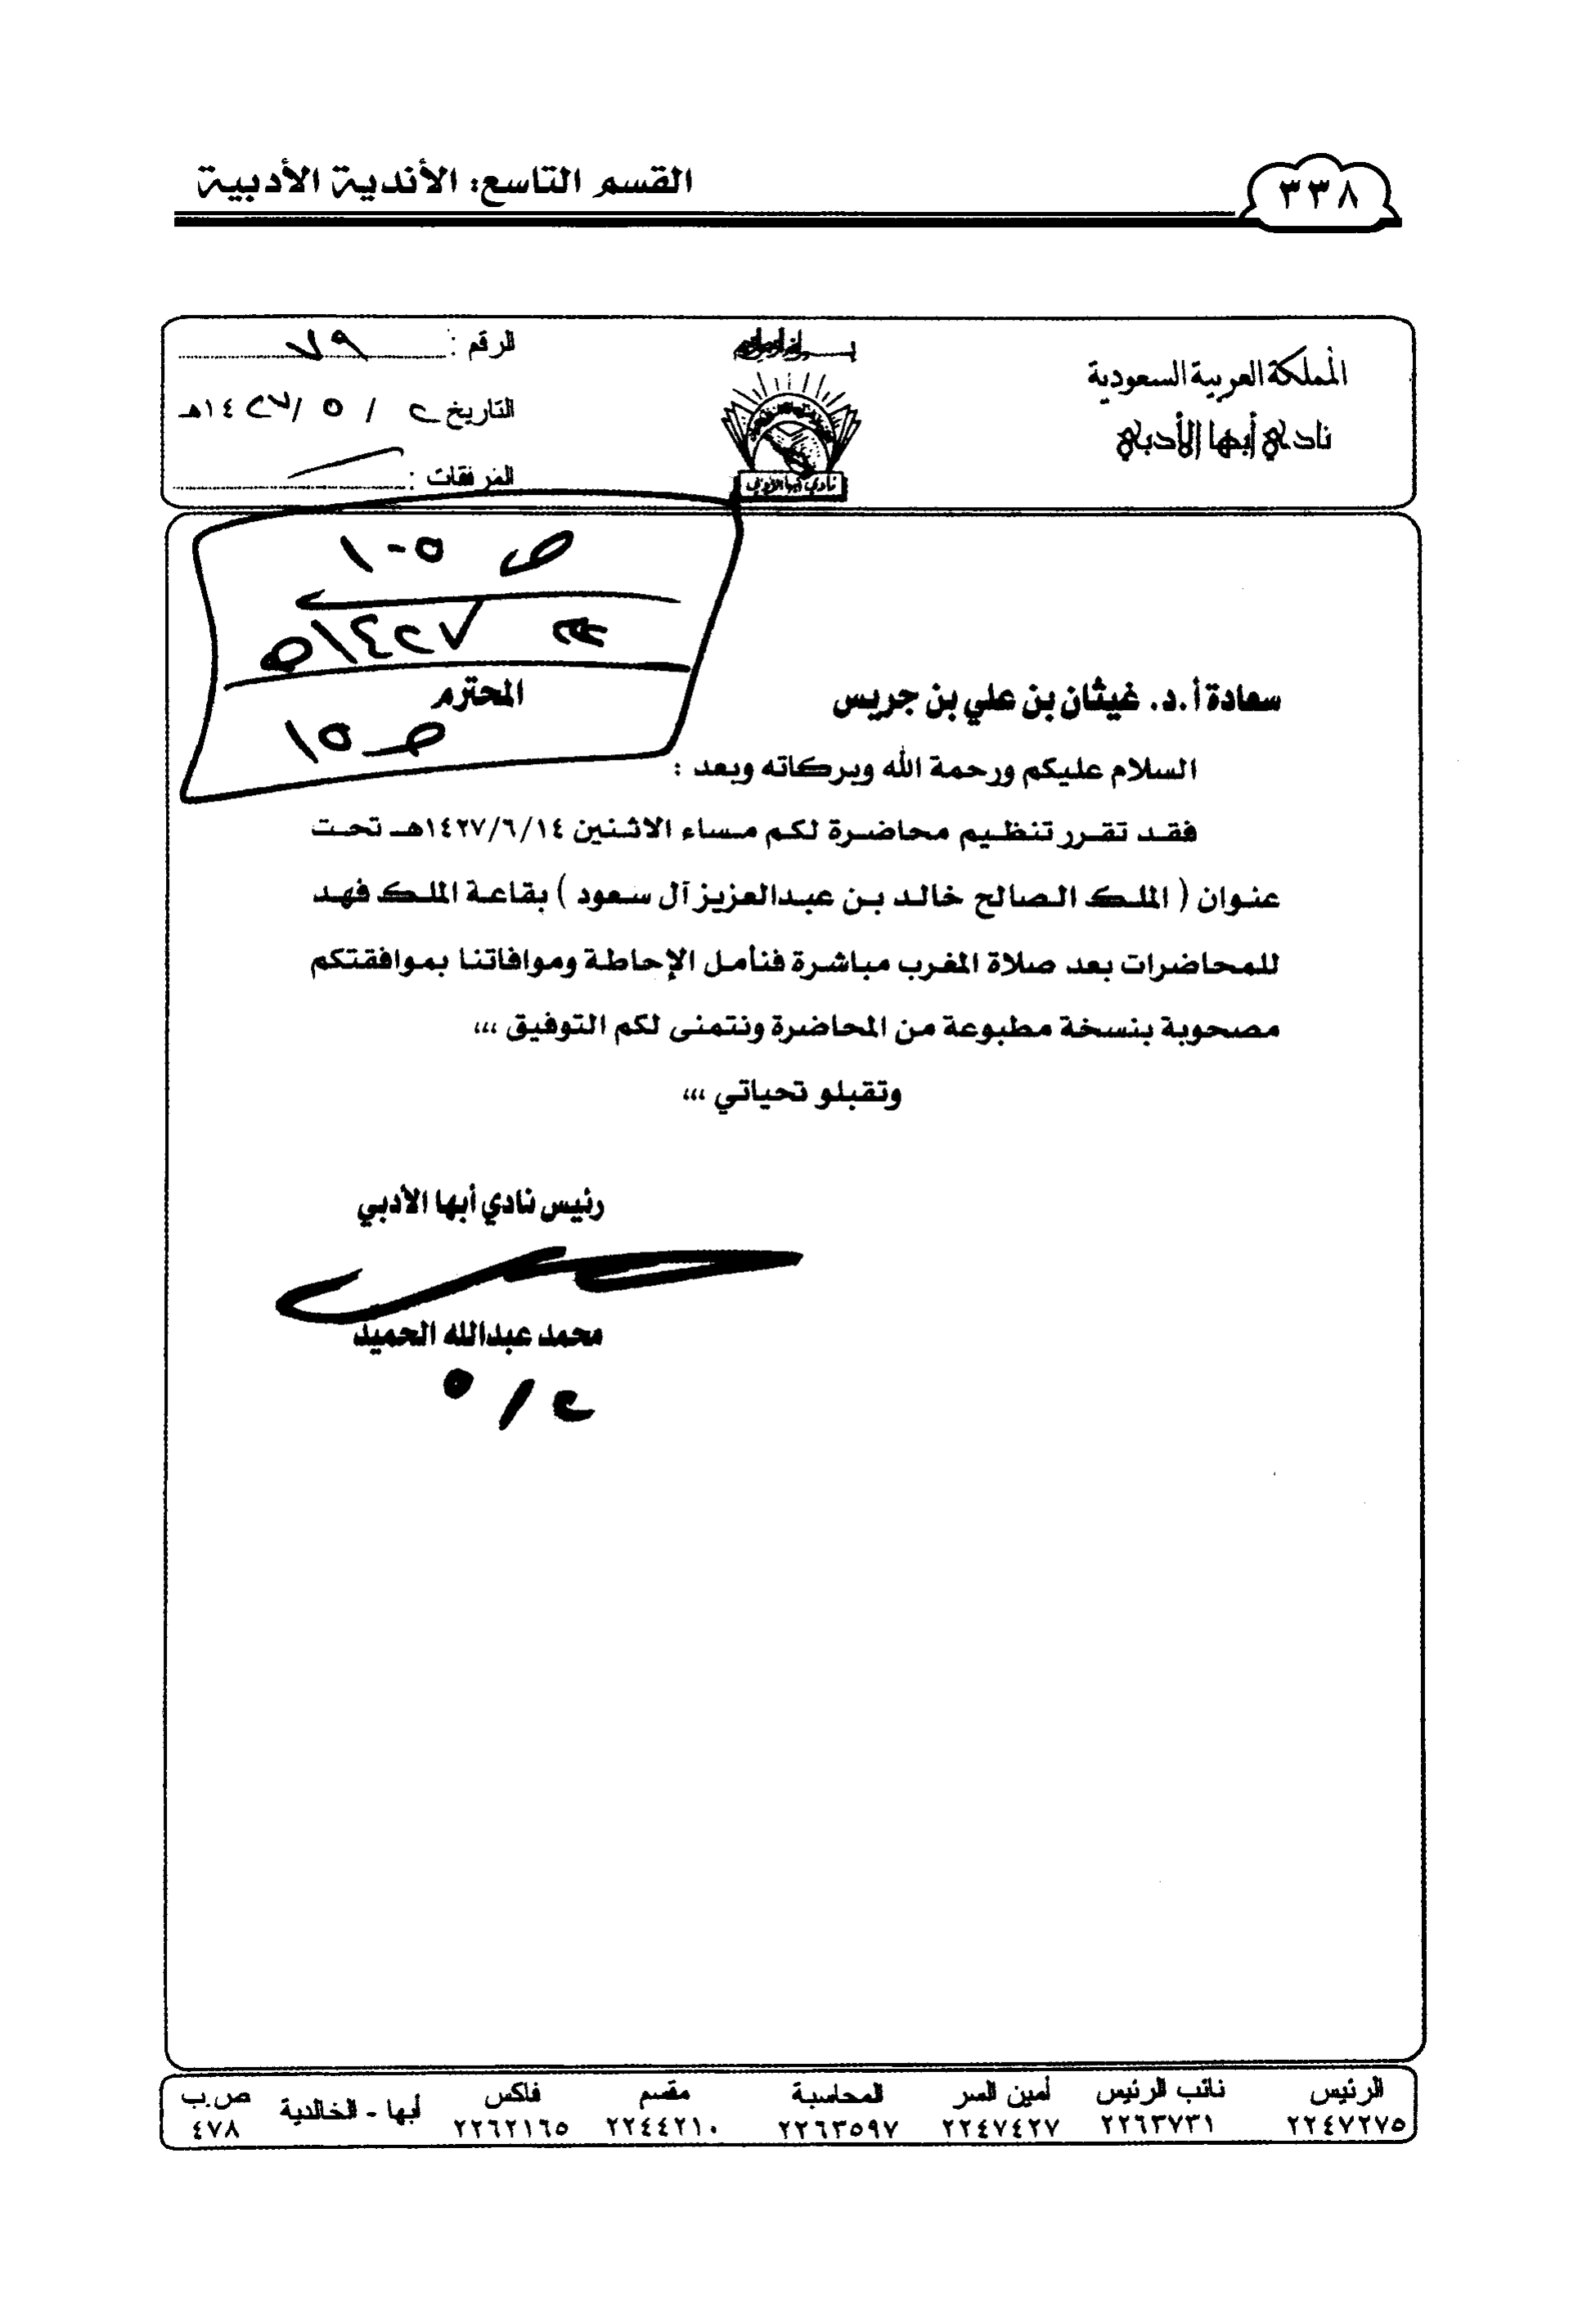 ٣٣٨
القسم التاسع: الأندية الأدبية
المملكة العربية السعودية
نادي أبها الأدبي
نادي أبها الأدبي
الرقم : ٧٩
التاريخ ٢ / ٥ / ١٤٢٧هـ
المرفقات :
ص ١٠٥
١٤٢٧هـ
سعادة أ.د. غيثان بن علي بن جريس المحترم
ص ١٥
السلام عليكم ورحمة الله وبركاته وبعد :
فقد تقرر تنظيم محاضرة لكم مساء الاثنين ١٤٢٧/٦/١٤هـ تحت
عنوان ( الملك الصالح خالد بن عبدالعزيز آل سعود ) بقاعة الملك فهد
للمحاضرات بعد صلاة المغرب مباشرة فنأمل الإحاطة وموافاتنا بموافقتكم
مصحوبة بنسخة مطبوعة من المحاضرة ونتمنى لكم التوفيق ،،،
وتقبلو تحياتي ،،،
رئيس نادي أبها الأدبي
محمد عبدالله الحميد
٢ / ٥
الرئيس نائب الرئيس أمين السر المحاسبة مقسم فاكس أبها - الخالدية ص.ب
٢٢٤٧٢٧٥ ٢٢٦٣٧٣١ ٢٢٤٧٤٢٧ ٢٢٦٣٥٩٧ ٢٢٤٤٢١٠ ٢٢٦٢١٦٥ ٤٧٨